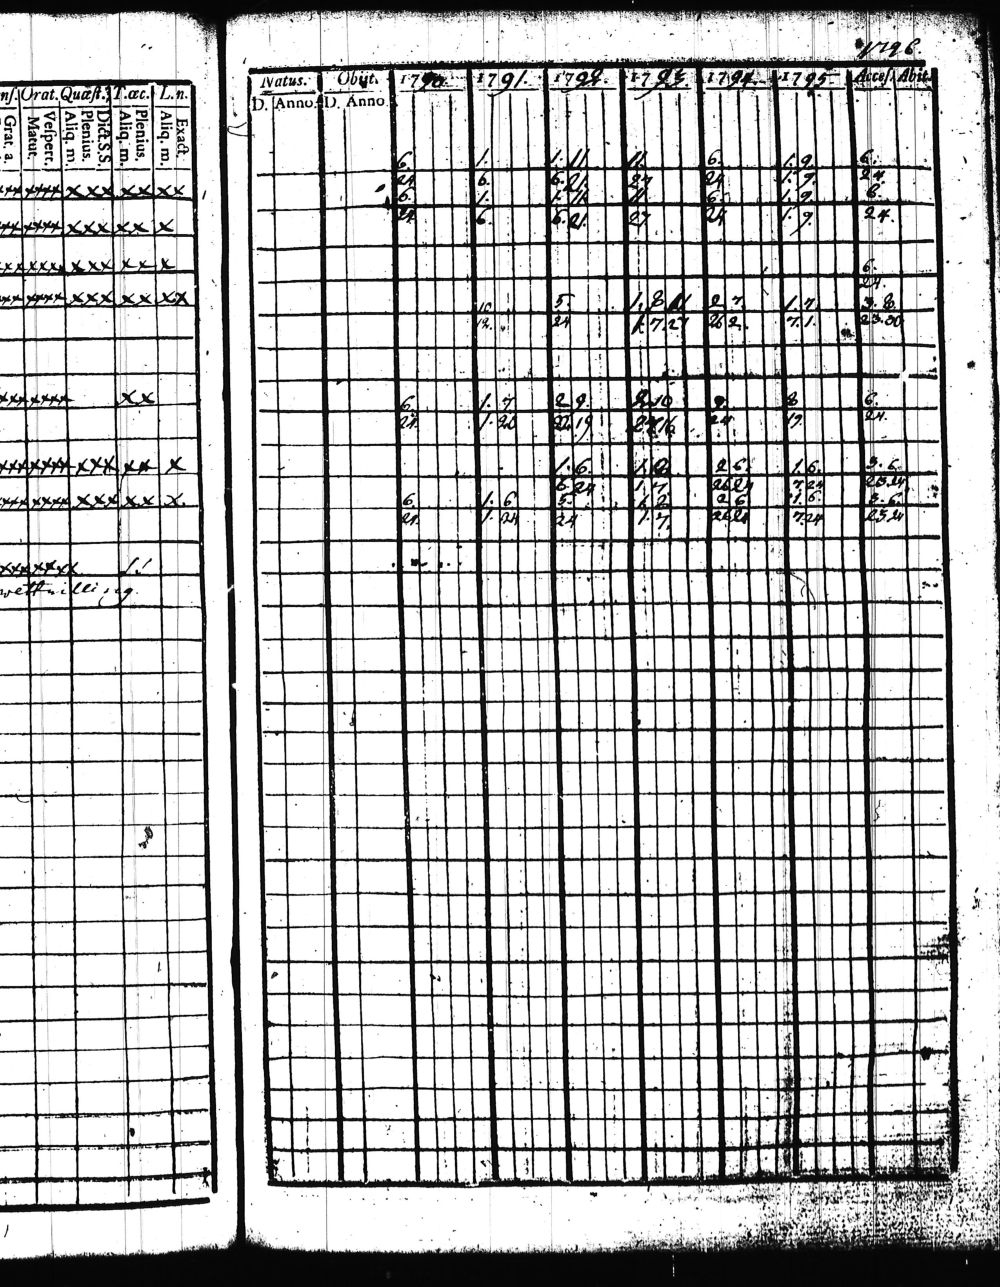 1796.
nſ. Orat. Quæſt. T.æc. L.n.
Grat. a. Veſpert. Matut. Dict. S.S. Plenius. Aliq. m. Plenius, Aliq. m. Exact. Aliq. m.
xxx xxxx xxx xx xx
xxx xxxx xxx xx x
xxx xxxx xxx xx x
xxx xxxx xxx xx xx
xxx xxxx xx
xxx xxxx xxx xx x
xxx xxxx xxx xx x.
Natus. Obijt. 1790. 1791. 1792. 1793. 1794. 1795. Acceſ. Abit.
D. Anno. D. Anno
6. 1. 1. 11. 11. 6. 1. 9. 6.
24. 6. 6. 21. 27 24 1. 9. 24.
6. 1. 1. 11. 11. 6. 1. 9. 6.
24. 6. 6. 21. 27 24 1. 9. 24.
6.
24.
10 5. 1. 8 11 2 7. 1. 7. 3. 8.
12. 24 1. 7. 27 26 2. 7. 1. 23. 30
6. 1. 7 2 9. 2 10 9. 8 6.
24. 1. 20 22. 19 27 16 24 19. 24.
1. 6. 1. 2 2 6. 1. 6. 3. 6.
6. 24 1. 7 26 24 7 24 23 24
6. 1. 6 5. 1. 2 2 6 1. 6 3. 6.
24. 1. 24 24 1. 7. 26 24 7. 24 23. 24